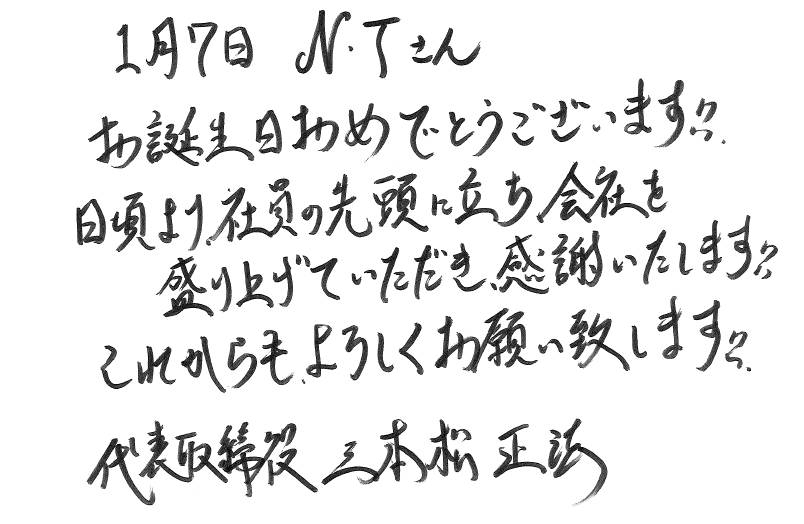 1月7日 N.Tさん
お誕生日おめでとうございます!!
日頃より、社員の先頭に立ち、会社を
盛り上げていただき、感謝いたします!!
これからも、よろしくお願い致します!!
代表取締役 三本松 正法